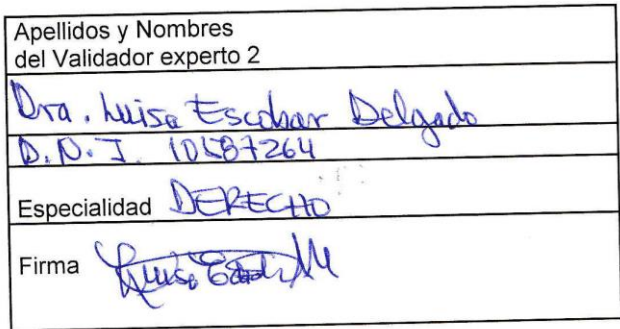 Apellidos y Nombres
del Validador experto 2
Dra. Luisa Escobar Delgado
D.N.I. 10587264
Especialidad DERECHO
Firma Luisa